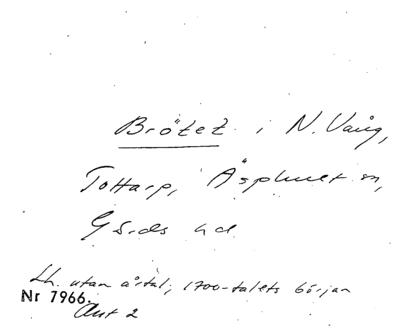 Brötet i N. Vång,
Tottarp, Äsphult sn,
Gärds hd
Lh. utan årtal, 1700-talets början
Nr 7966.
Avt 2